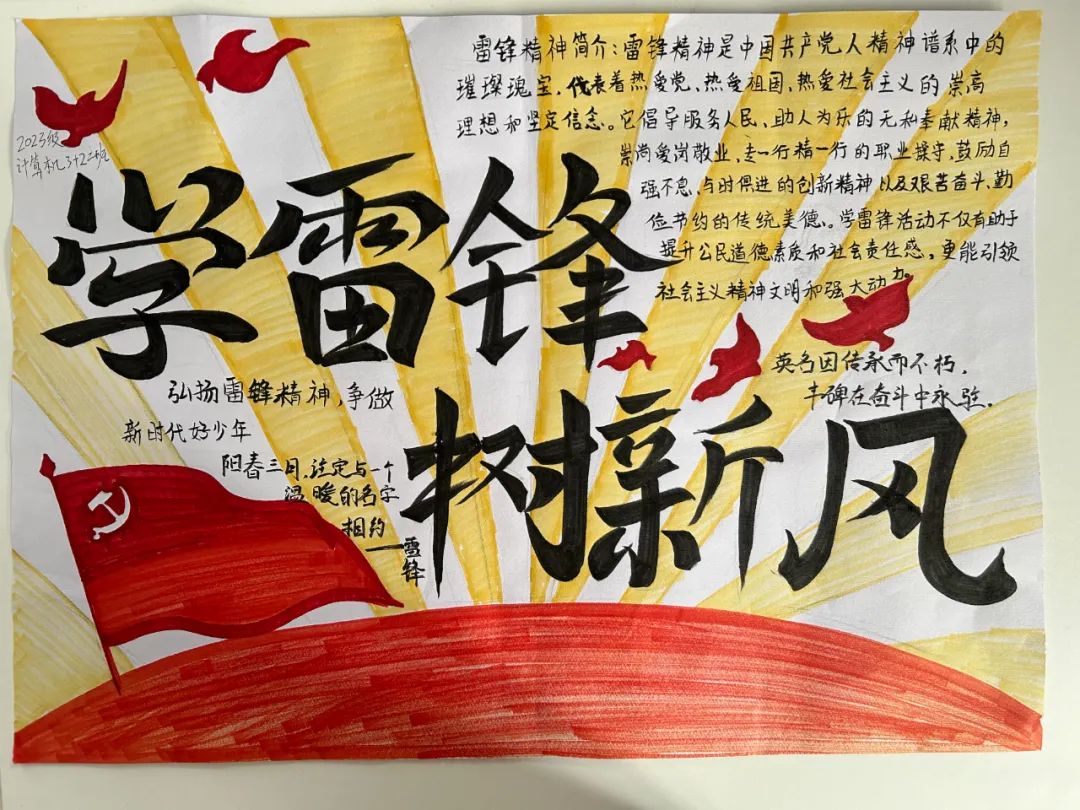 雷锋精神简介:雷锋精神是中国共产党人精神谱系中的
璀璨瑰宝,代表着热爱党、热爱祖国、热爱社会主义的崇高
理想和坚定信念。它倡导服务人民、助人为乐的无私奉献精神,
崇尚爱岗敬业、专一行精一行的职业操守,鼓励自
强不息、与时俱进的创新精神以及艰苦奋斗、勤
俭节约的传统美德。学雷锋活动不仅有助于
提升公民道德素质和社会责任感,更能引领
社会主义精神文明和强大动力。
2023级
计算机3+2二班
学雷锋
树新风
英名因传承而不朽,
丰碑在奋斗中永驻.
弘扬雷锋精神,争做
新时代好少年
阳春三月,注定与一个
温暖的名字
相约
——雷锋